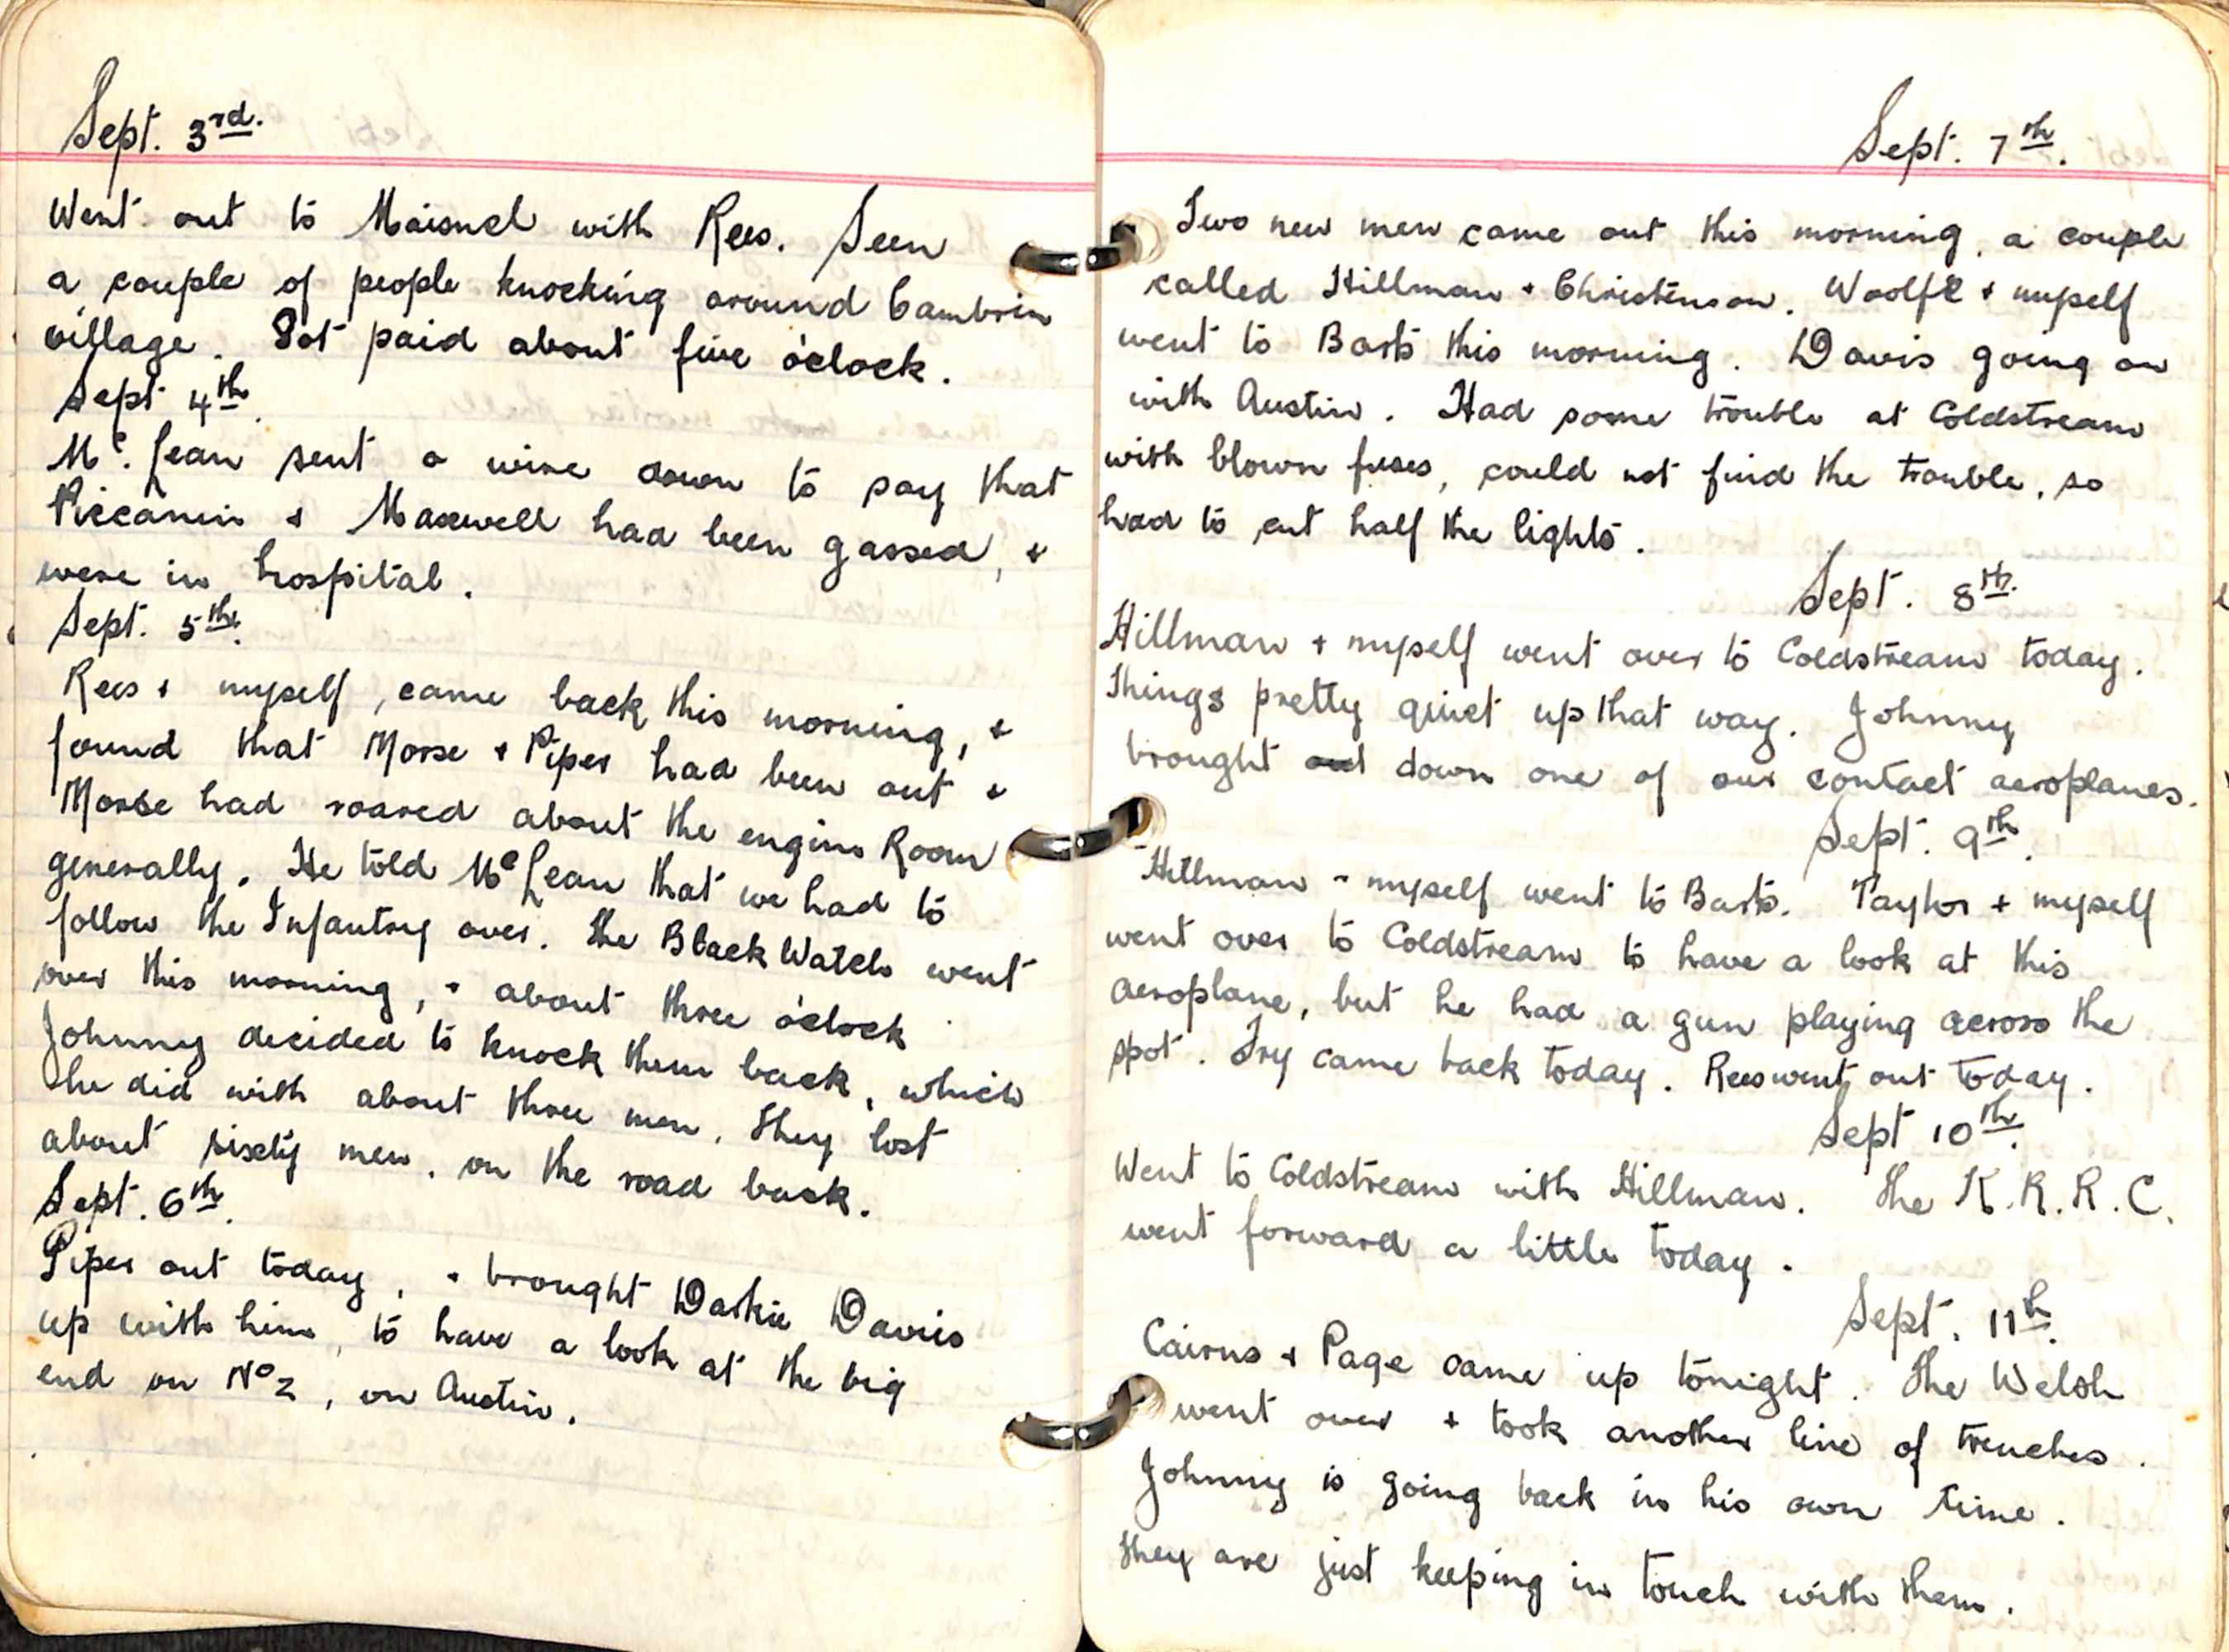 Sept. 3rd.
Went out to Maisnel with Rees. Seen
a couple of people knocking around Cambrin
village. Got paid about five o'clock.
Sept 4th.
Mc. Lean sent a wire down to say that
Piccanin + Maxwell had been gassed, +
were in hospital.
Sept. 5th.
Rees + myself, came back this morning, +
found that Morse + Piper had been out +
Morse had roared about the engine Room
generally. He told Mc Lean that we had to
follow the Infantry over. The Black Watch went
over this morning, + about three o'clock
Johnny decided to knock them back, which
he did with about three men. They lost
about sixty men, on the road back.
Sept. 6th.
Piper out today, + brought Darkie Davis
up with him, to have a look at the big
end on No 2, on Austin.
Sept. 7th.
Two new men came out this morning, a couple
called Hillman + Christenson. Woolfe + myself
went to Barts this morning. Davis going on
with Austin. Had some trouble at Coldstream
with blown fuses, could not find the trouble, so
had to cut half the lights.
Sept. 8th.
Hillman + myself went over to Coldstream today.
Things pretty quiet up that way. Johnny
brought out down one of our contact aeroplanes.
Sept. 9th.
Hillman + myself went to Barts. Taylor + myself
went over to Coldstream to have a look at this
aeroplane, but he had a gun playing across the
spot. Fry came back today. Rees went out today.
Sept 10th.
Went to Coldstream with Hillman. The K.R.R.C.
went forward a little today.
Sept. 11th.
Cairns + Page came up tonight. The Welsh
went over + took another line of trenches.
Johnny is going back in his own time.
They are just keeping in touch with them.